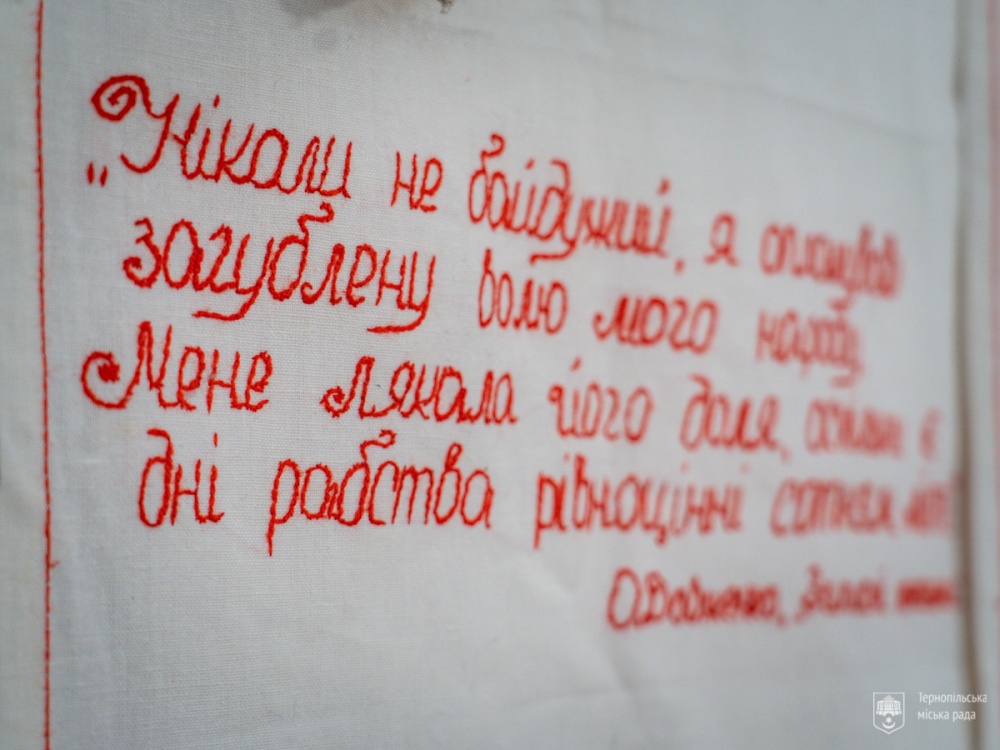 „Ніколи не байдужий, я оплакував
загублену волю мого народу.
Мене лякала його доля, є
дні рабства рівноцінні сотням літ
О.Довженко,
Тернопільська
міська рада